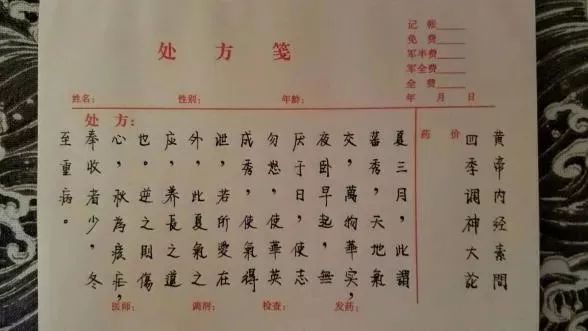 处方笺
记帐____
免费____
军半费____
军全费____
全费____
姓名: 性别: 年龄: 年 月 日
处方:
药价
黄帝内经素問
四季调神大论
夏三月,此謂
蕃秀,天地氣
交,萬物華实,
夜卧早起,無
厌于日,使志
勿怒,使華英
成秀,使氣得
泄,若所愛在
外,此夏氣之
应,养長之道
也。逆之則傷
心,秋為痎疟,
奉收者少,冬
至重病。
医师: 调剂: 检查: 发药: